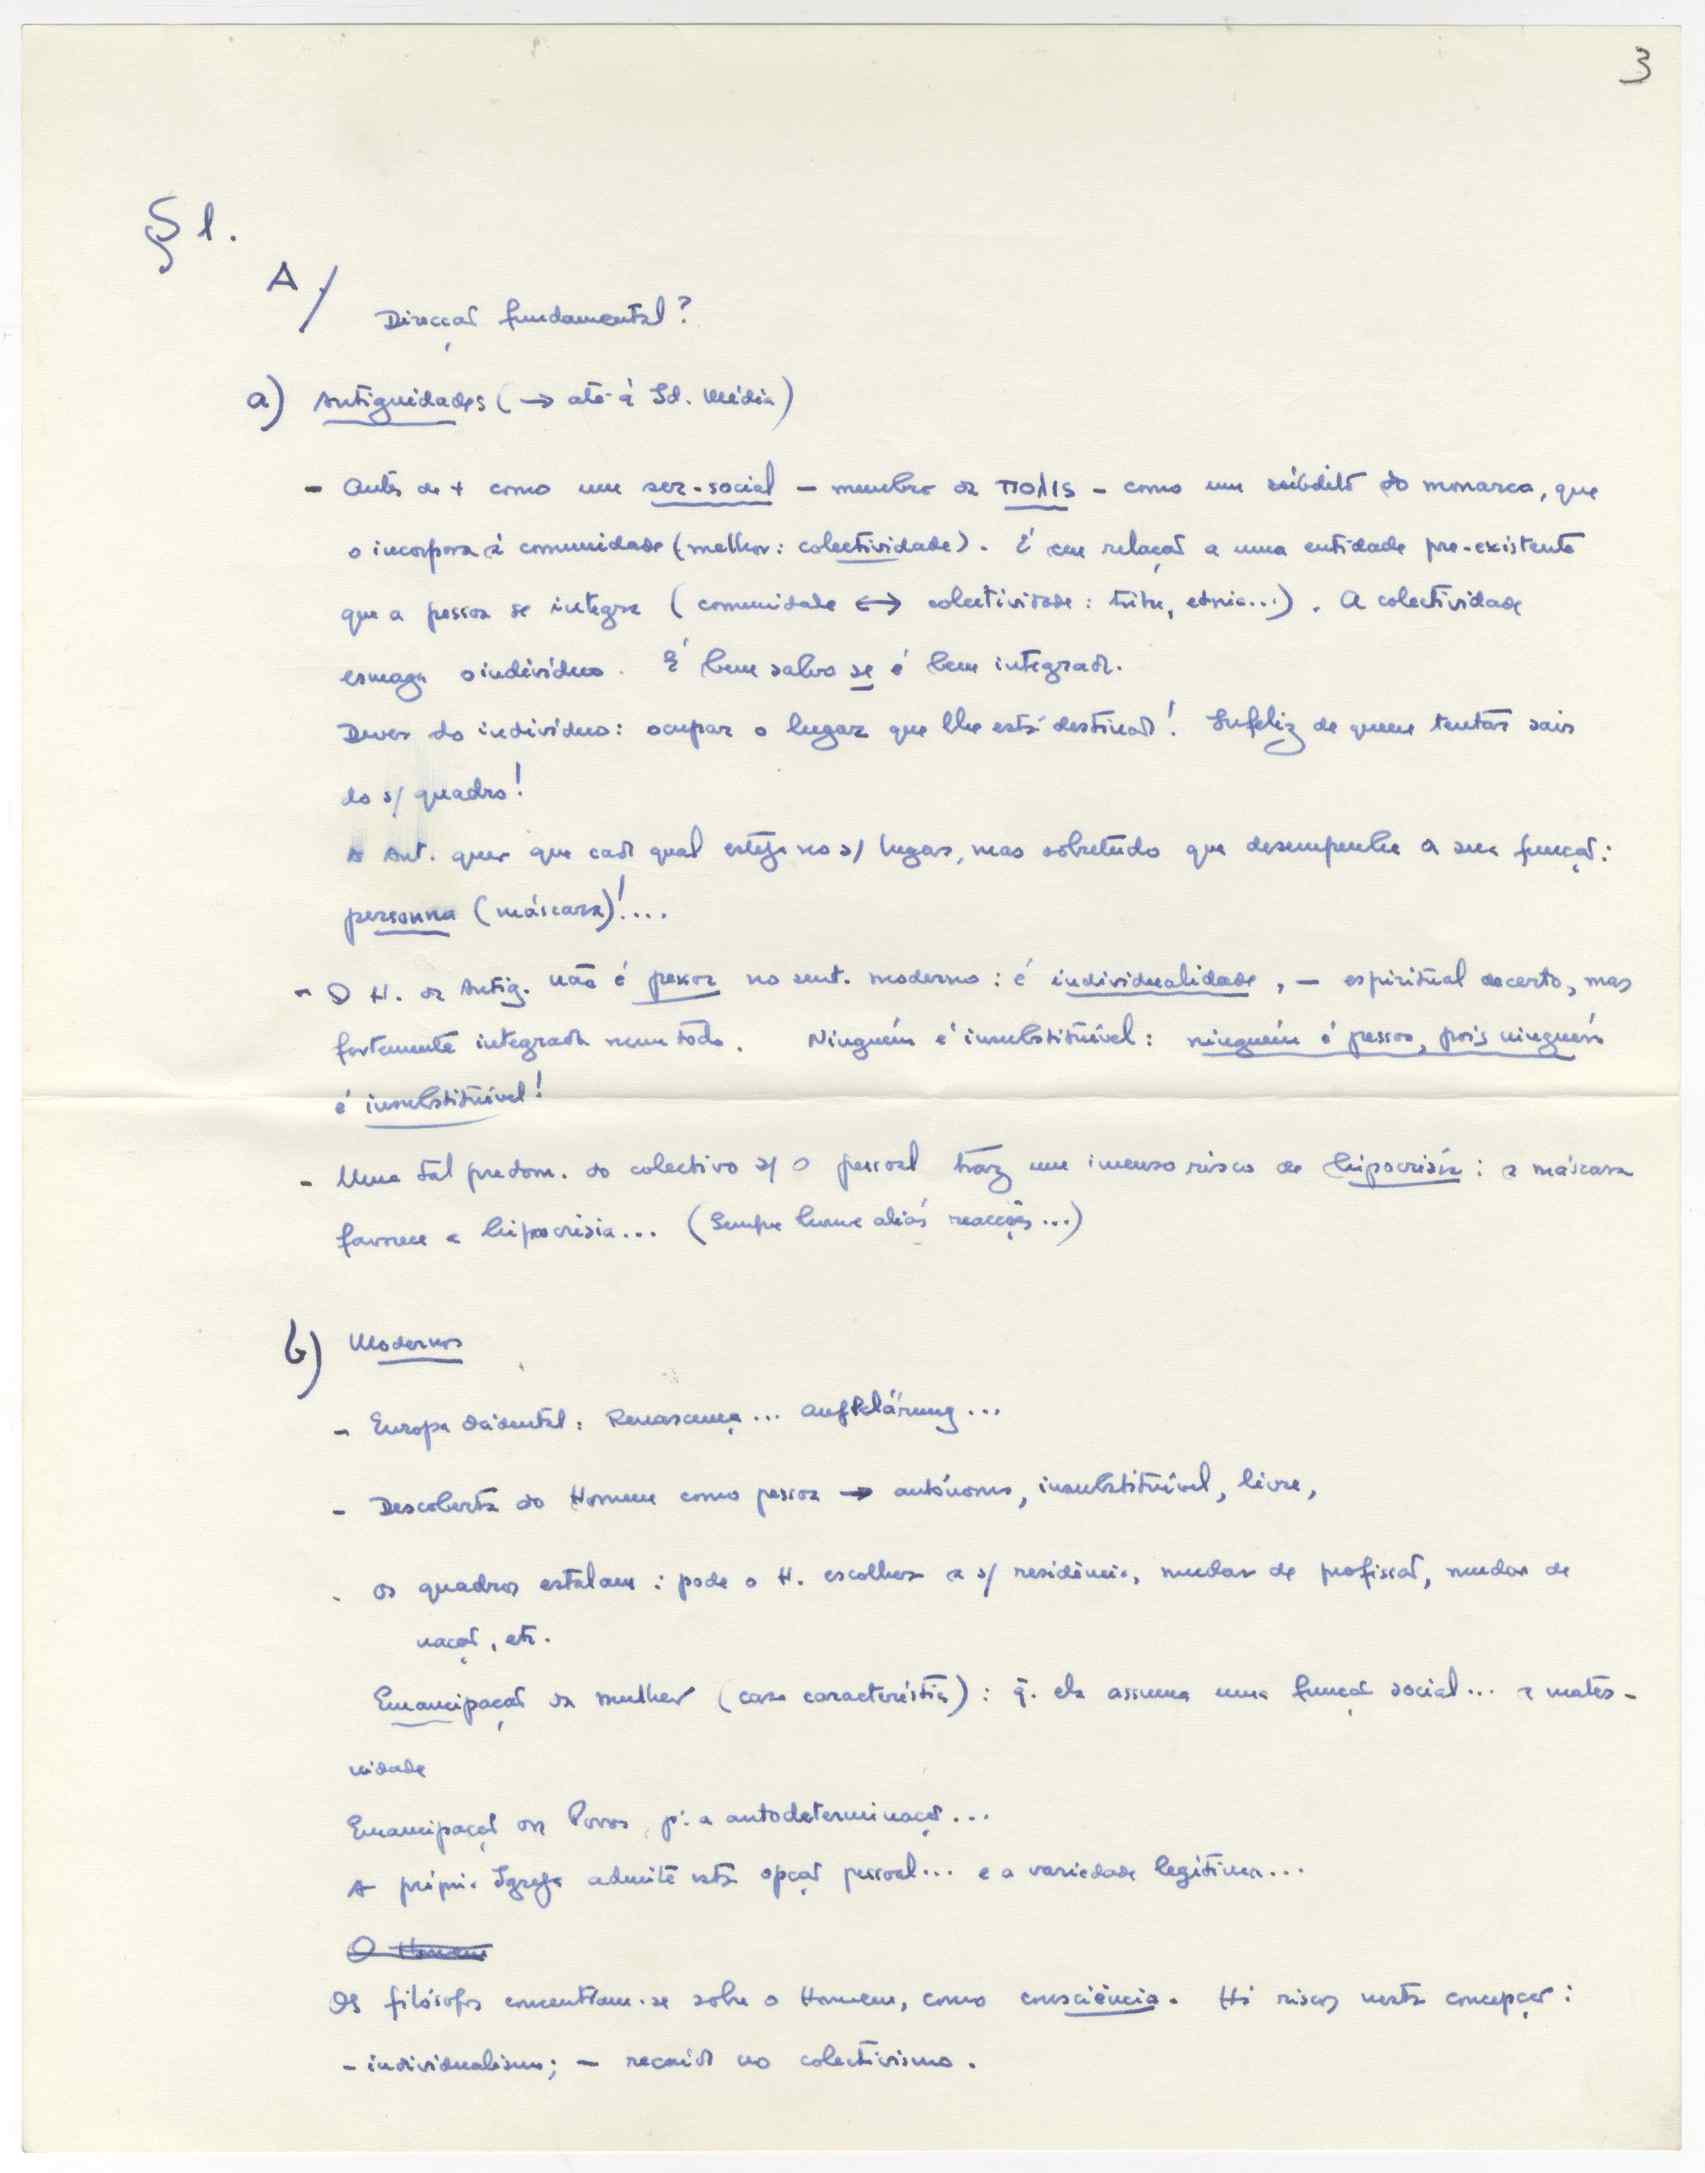 3
§ 1.
A/
Direcção fundamental?
a) Antiguidades (→ até à Id. Média)
- Antes de + como um ser-social - membro da πολις - como um súbdito do monarca, que
o incorpora à comunidade (melhor: colectividade). É em relação a uma entidade pre-existente
que a pessoa se integra (comunidade ↔ colectividade: tribu, etnia...). A colectividade
esmaga o indivíduo. É bem salvo se é bem integrado.
Dever do indivíduo: ocupar o lugar que lhe está destinado! Infeliz de quem tentar sair
do s/ quadro!
A Ant. quer que cada qual esteja no s/ lugar, mas sobretudo que desempenhe a sua função:
personna (máscara)!....
- O H. da Antig. não é pessoa no sent. moderno: é individualidade, - espiritual decerto, mas
fortemente integrada num todo. Ninguém é insubstituível: ninguém é pessoa, pois ninguém
é insubstituível!
- Uma tal predom. do colectivo s/ o pessoal traz um imenso risco de hipocrisia: a máscara
favorece a hipocrisia... (Sempre houve aliás reacções...)
b) Modernos
- Europa Ocidental: Renascença... Aufklärung...
- Descoberta do Homem como pessoa → autónomo, insubstituível, livre,
- Os quadros estalam: pode o H. escolher a s/ residência, mudar de profissão, mudar de
nação, etc.
Emancipação da mulher (caso característico): q. ela assuma uma função social... a mater-
nidade
Emancipação dos Povos, p. a autodeterminação...
A própria Igreja admite esta opção pessoal... e a variedade legítima...
O Homem
Os filósofos concentram-se sobre o Homem, como consciência. Há riscos nesta concepção:
- individualismo; - recaída no colectivismo.